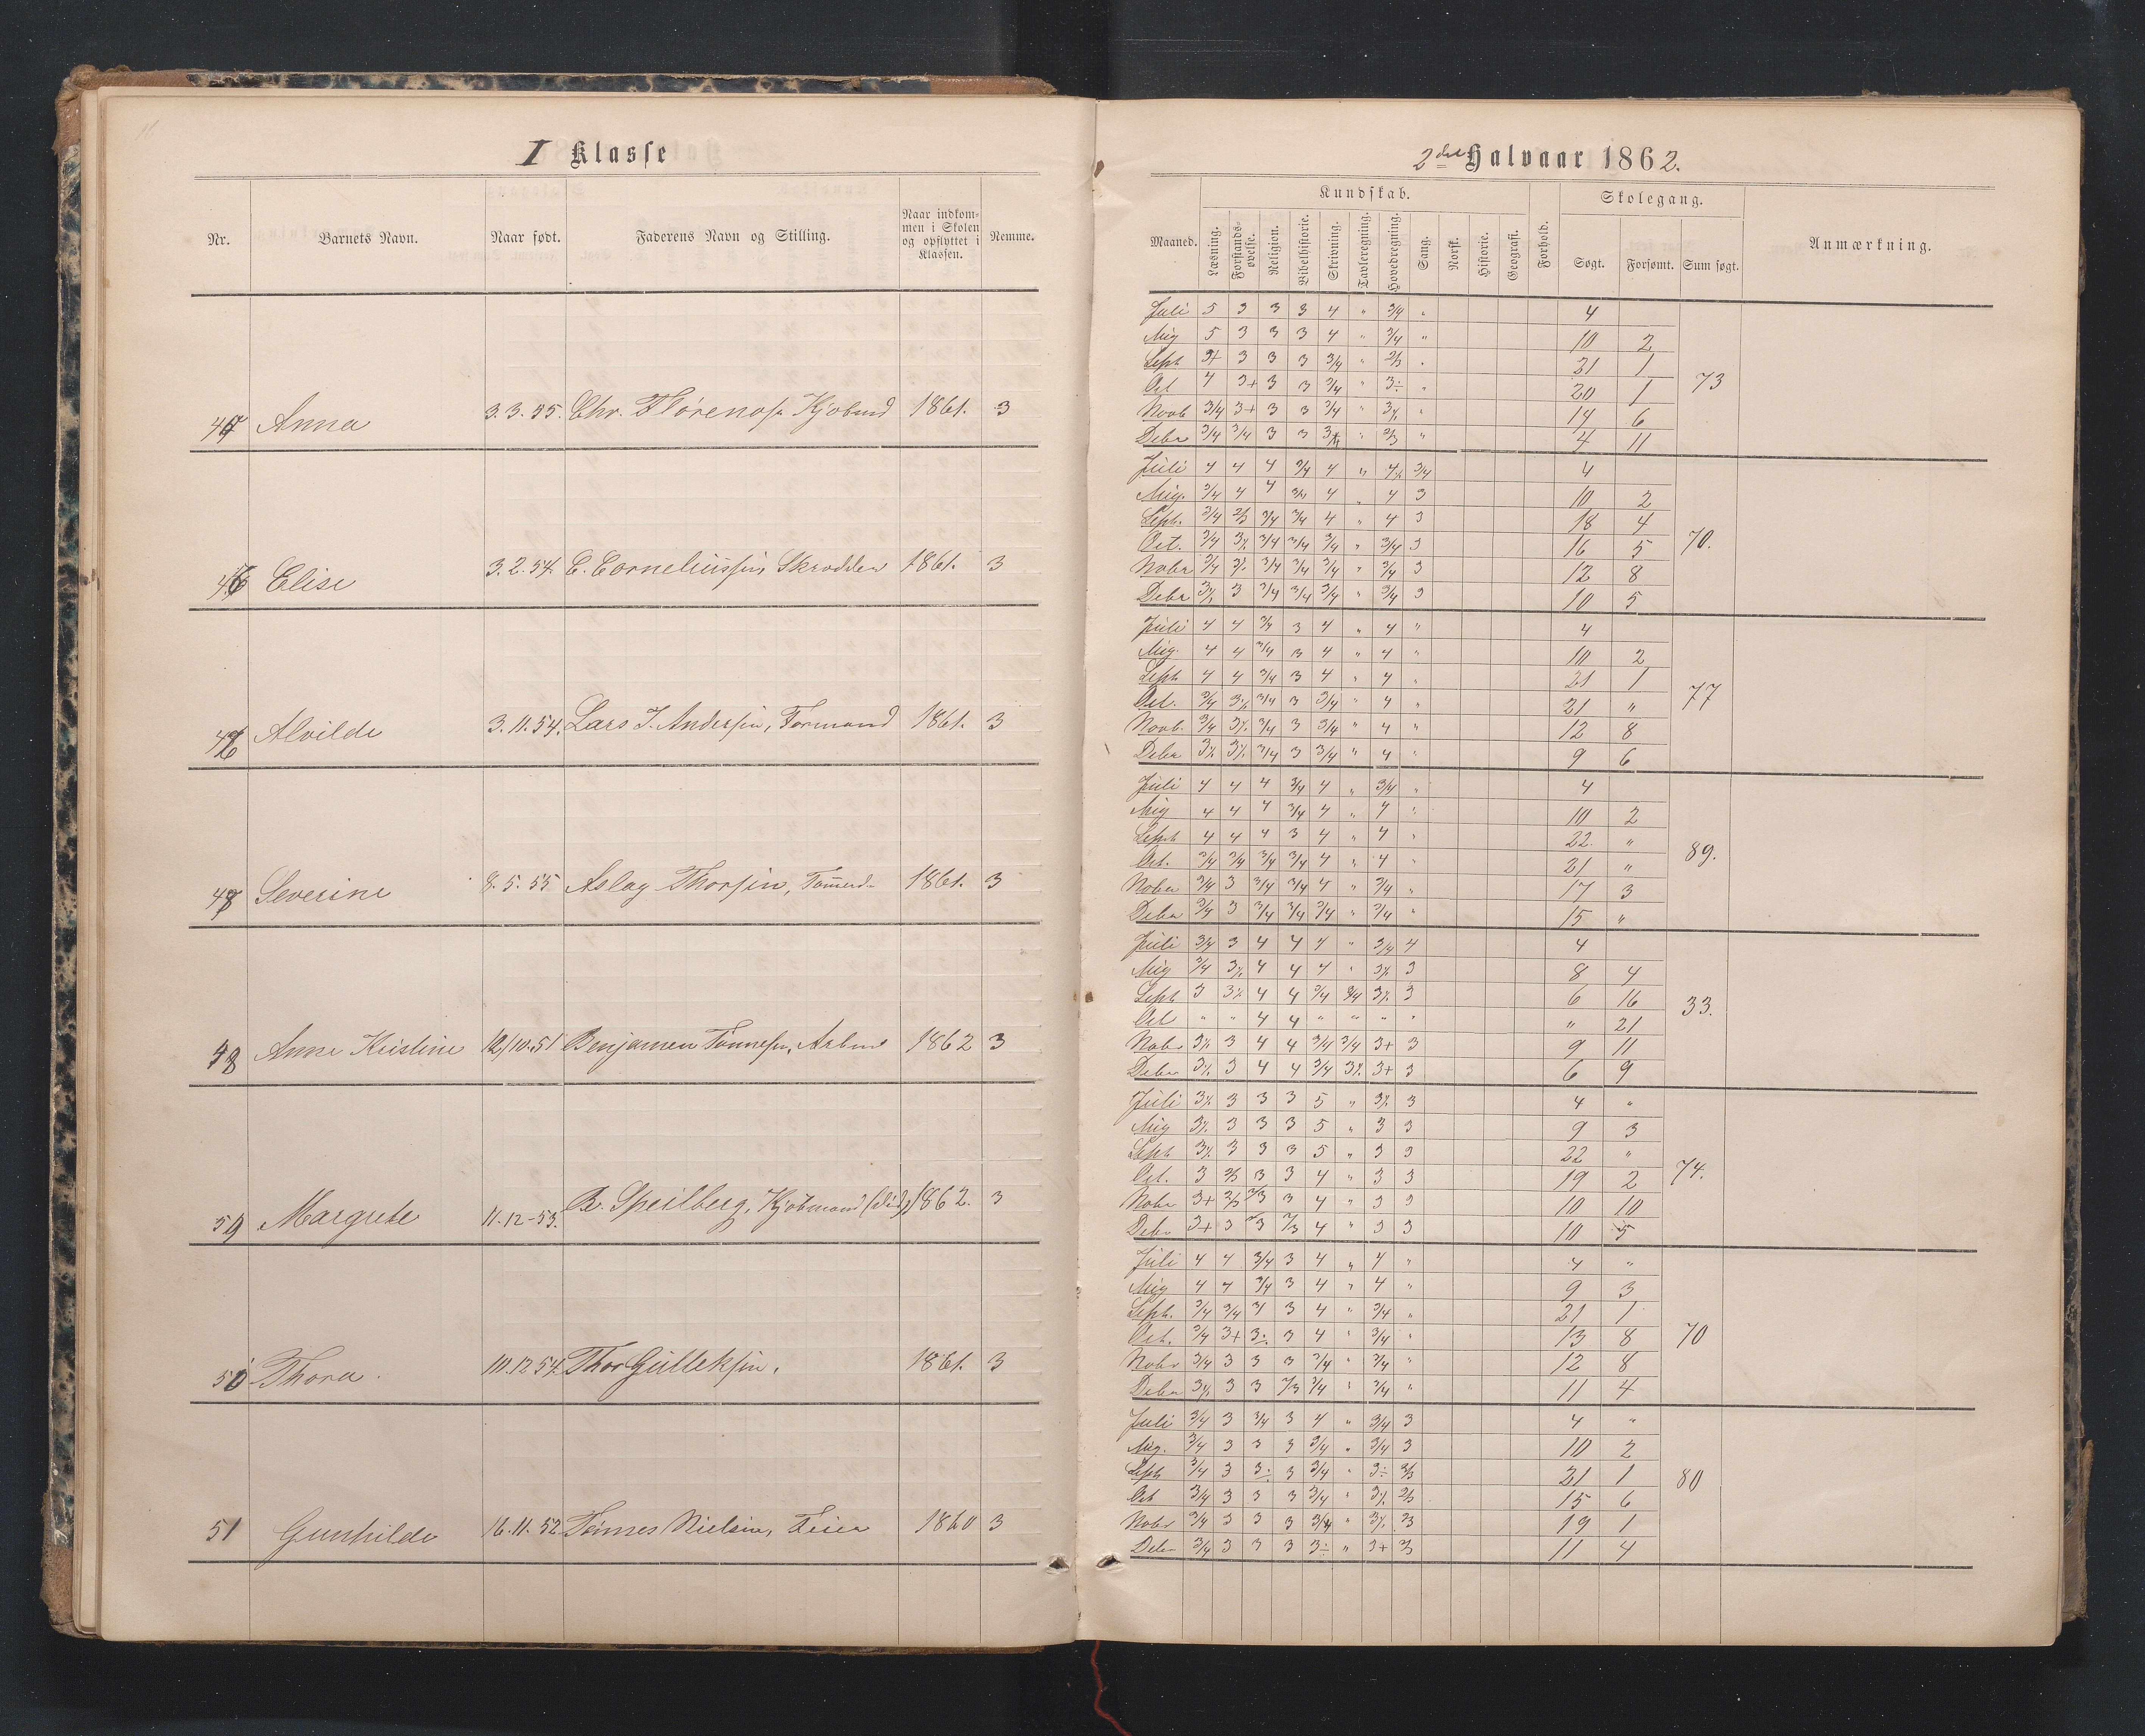 I Klasse
Nr. Barnets Navn. Naar født. Faderens Navn og Stilling. Naar indkom-men i Skolen og opflyttet i Klassen. Nemme.
Anna 3.3.55. Chr. 1861. 3
Elise 3.2.54. C. Corneliussen, Skrædder 1861. 3
Alvilde 3.11.54. Lars J. Andersen, Formand 1861. 3
Severine 8.5.55 Aslag Thorsen, 1861. 3
Anne Kristine 12/10.51 Benjamen Tønnesen, Arbm 1862 3
Margrete 11.12-53. Speilberg, Kjøbmand (død) 1862. 3
50 Thora. 10.12.54. Thor Gulleksen. 1861. 3
51 Gunhilde 16.11.52 Tønnes Nielsen, Feier 1860 3
2det Halvaar 1862.
Kundskab. Skolegang.
Maaned. Læsning. Forstands-øvelse. Religion. Bibelhistorie. Skrivning. Tavleregning. Hovedregning. Sang. Norsk. Historie. Geografi. Forhold. Søgt. Forsømt. Sum søgt. Anmærkning.
Juli 5 3 3 3 4 " 3/4 " 4
Aug 5 3 3 3 4 " 3/4 " 10 2
Sept 3+ 3 3 3 3/4 " 2/3 " 21 1
Oct 4 3+ 3 3 3/4 " 3÷ " 20 1 73
Novb 3/4 3+ 3 3 3/4 " " 14 6
Debr 3/4 3/4 3 3 " 2/3 " 4 11
Juli 4 4 4 3/4 4 " 3/4 4
Aug. 3/4 4 4 3/4 4 " 4 3 10 2
Sept. 3/4 2/3 3/4 3/4 4 " 4 3 18 4
Oct. 3/4 3/4 3/4 3/4 " 3/4 3 16 5 70.
Nobr 3/4 3/4 3/4 3/4 " 3/4 3 12 8
Debr 3 3/4 3/4 3/4 " 3/4 3 10 5
Juli 4 4 3/4 3 4 " 4 " 4
Aug. 4 4 3/4 3 4 " 4 " 10 2
Sept 4 4 3/4 3 4 " 4 " 21 1
Oct. 3/4 3/4 3 3/4 " 4 " 21 " 77
Novb. 3/4 3/4 3 3/4 " 4 " 12 8
Debr 3/4 3 3/4 " 4 " 9 6
Juli 4 4 4 3/4 4 " 3/4 " 4
Aug 4 4 4 3/4 4 " 4 " 10 2
Sept 4 4 4 3 4 " 4 " 22. "
Oct. 3/4 3/4 3/4 3/4 4 " 4 " 21 " 89.
Nobr 3/4 3 3/4 3/4 4 " 3/4 " 17 3
Debr 3/4 3 3/4 3/4 3/4 " 3/4 " 15 "
Juli 3/4 3 4 4 4 " 3/4 4 4
Aug 3/4 4 4 4 " 3 8 4
Sept 3 4 4 3/4 3/4 3 6 16
Oct " " 4 4 " " " " " 21 33.
Nobr 3 4 4 3/4 3/4 3+ 3 9 11
Debr 3 4 4 3/4 3+ 3 6 9
Juli 3 3 3 5 " 3 4 "
Aug 3 3 3 5 " 3 3 9 3
Sept 3 3 3 5 " 3 3 22 "
Oct. 3 2/3 3 3 4 " 3 3 19 2 74.
Nobr 3+ 2/3 2/3 3 4 " 3 3 10 10
Debr 3+ 3 2/3 2/3 4 " 3 3 10 5
Juli 4 4 3/4 3 4 " 4 " 4 "
Aug 4 4 3/4 3 4 " 4 " 9 3
Sept. 3/4 3/4 3 4 " 3/4 " 21 1
Oct. 3/4 3+ 3÷ 3 4 " 3/4 " 13 8 70
Nobr 3/4 3 3 3 3/4 " 3/4 " 12 8
Debr 3 3 2/3 3/4 " 3/4 " 11 4
Juli 3/4 3 3/4 3 4 " 3/4 3 4 "
Aug. 3/4 3 3 3 3/4 " 3/4 3 10 2
Sept 3/4 3 3÷ 3 3/4 " 3÷ 2/3 21 1 80
Oct 3/4 3 3 3 3/4 " 2/3 15 6
Nobr 3/4 3 3 3 3/4 " 2/3 19 1
Debr 3/4 3 3 3 3÷ " 3+ 2/3 11 4